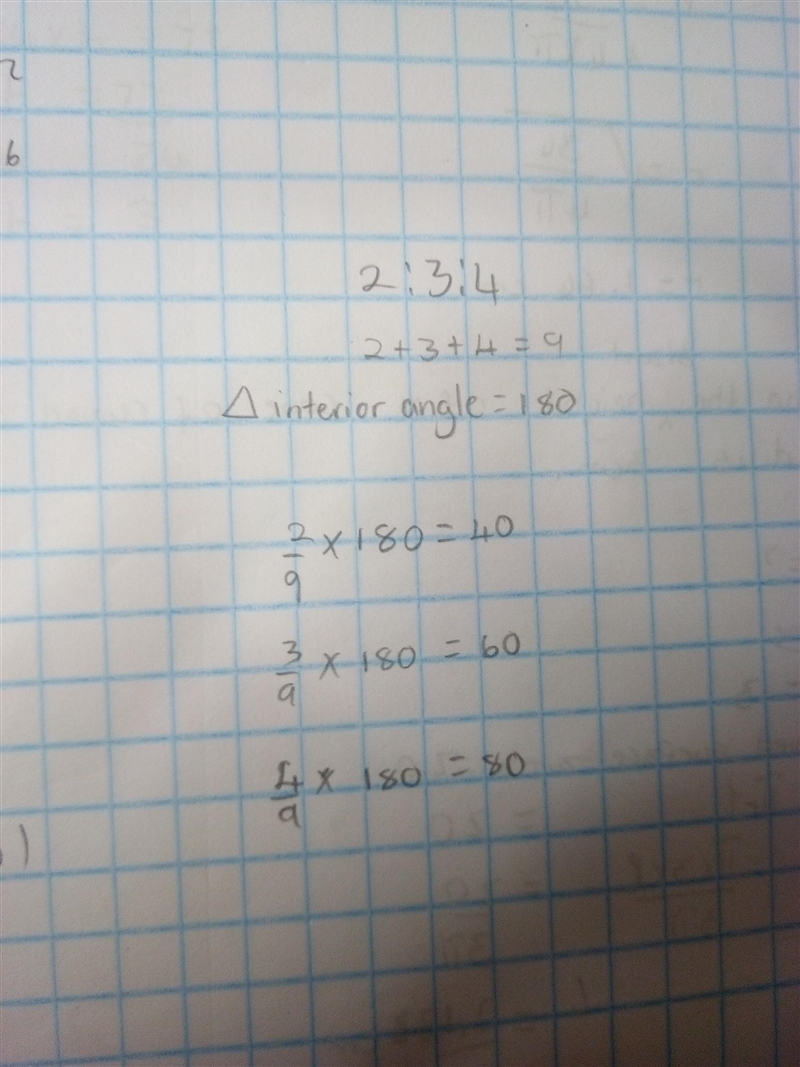 2
6
2:3:4
2+3+4=9
△ interior angle=180
2/9 × 180 = 40
3/9 × 180 = 60
4/9 × 180 = 80
)